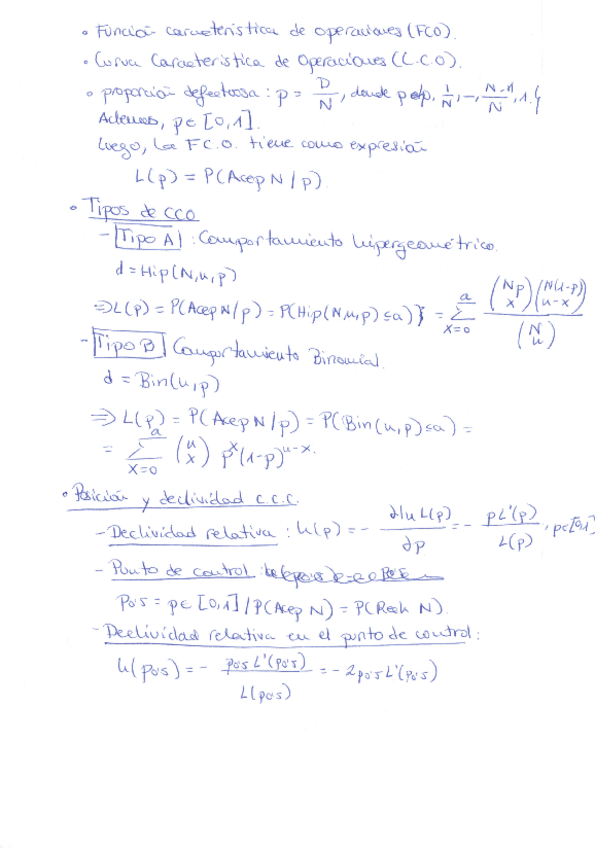 • Función característica de operaciones (FCO).
• Curva Característica de Operaciones (C.C.O).
• proporción defectuosa: p = D/N, donde p ∈ {0, 1/N, ..., N-1/N, 1.}
Además, p ∈ [0,1].
Luego, la F.C.O. tiene como expresión
L(p) = P(Acep N / p)
• Tipos de CCO
- Tipo A : Comportamiento hipergeométrico.
d = Hip(N,n,p)
⇒ L(p) = P(Acep N/p) = P{Hip(N,n,p) ≤ a} = Σ_{x=0}^{a} (Np x)(N(1-p) n-x) / (N n)
- Tipo B Comportamiento Binomial.
d = Bin(n,p)
⇒ L(p) = P(Acep N/p) = P(Bin(n,p) ≤ a) =
= Σ_{x=0}^{a} (n x) p^x (1-p)^{n-x}.
• Posición y declividad C.C.C.
- Declividad relativa : h(p) = - ∂ln L(p)/∂p = - pL'(p)/L(p), p ∈ [0,1]
- Punto de control :
p0's = p ∈ [0,1] / P(Acep N) = P(Rech N).
- Declividad relativa en el punto de control :
h(p0's) = - p0's L'(p0's)/L(p0's) = - 2p0's L'(p0's)